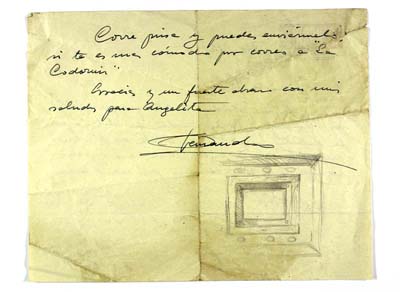 Corre prisa y puedes enviármelo
si te es mas cómodo por correo a "La
Codorniz"
Gracias y un fuerte abrazo con mis
saludos para Angelita
Fernando